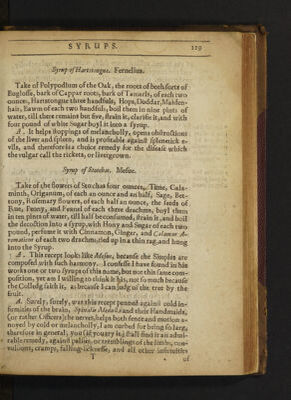 SYRUPS. 119
Syrup of Hartstongue. Fernelius.
Take of Polypodium of the Oak, the roots of both sorts of
Buglosse, bark of Cappar roots, bark of Tamaris, of each two
ounces, Hartstongue three handfuls, Hops, Doddar, Maiden-
hair, Bawm of each two handfuls; boil them in nine pints of
water, till there remains but five, strain it, clarifie it, and with
four pound of white Sugar boyl it into a Syrup.
A. It helps stoppings of melancholly, opens obstructions
of the liver and spleen, and is profitable against splenetick e-
vils, and therefore is a choice remedy for the disease which
the vulgar call the rickets, or livergrown.
Syrup of Stoechas. Mesue.
Take of the flowers of Stoechas four ounces, Time, Cala-
minth, Origanum, of each an ounce and an half, Sage, Bet-
tony, Rosemary flowers, of each half an ounce, the seeds of
Rue, Peony, and Fennel of each three drachms, boyl them
in ten pints of water, till half be consumed, strain it, and boil
the decoction into a syrup, with Hony and Sugar of each two
pound, perfume it with Cinnamon, Ginger, and Calamus A-
romaticus of each two drachms, tied up in a thin rag, and hung
into the Syrup.
A. This recept looks like Mesue, because the Simples are
composed with such harmony. I confesse I have found in his
works one or two syrups of this name, but not this same com-
position, yet am I willing to think it his, not so much because
the Colledg saith it, as because I can judg of the tree by the
fruit.
A. Surely, surely, was this recept penned against cold in-
firmities of the brain, and their Handmaids,
(or rather Officers) the nerves, helps both sence and motion a-
noyed by cold or melancholly, I am curbed for being so large,
therefore in general; you (if you try it) shall find it an admi-
rable remedy, against palsies, or tremblings of the limbs, con-
vulsions, cramps, falling-sicknesse, and all other infirmities
T of